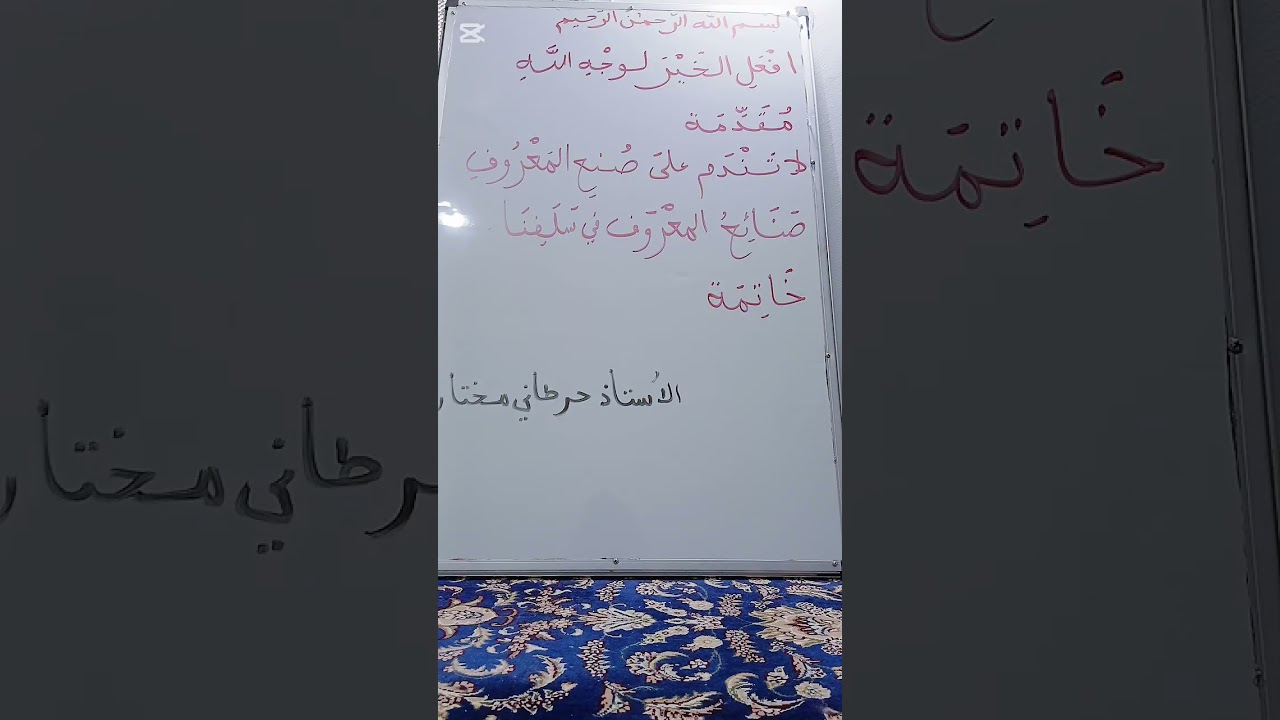 بسم الله الرّحمٰن الرّحيم
افْعَلِ الخَيْرَ لوجْهِ اللَّهِ
مُقَدّمَة
لا تَنْدَم علىَ صُنعِ المَعْرُوفِ
صَنَائِعُ المعْرُوَف في سَلَفِنَا
خَاتِمَة
الأُستاذ حرطاني مختار
خَاتِمَة
رطاني مختار